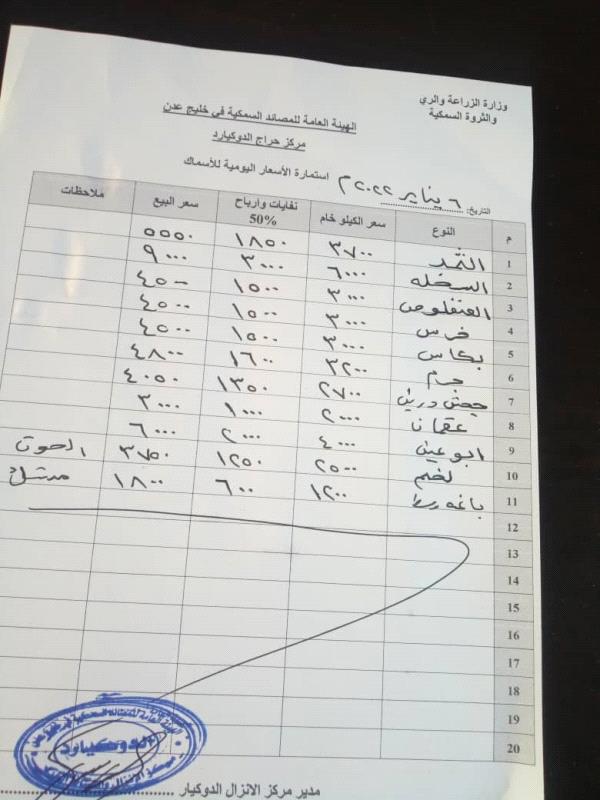 وزارة الزراعة والري
والثروة السمكية
الهيئة العامة للمصائد السمكية في خليج عدن
مركز حراج الدوكيارد
استمارة الأسعار اليومية للأسماك
التاريخ: ٦ يناير ٢٠٢٢م
م النوع سعر الكيلو خام نفايات وارباح 50% سعر البيع ملاحظات
1 الثمد ٣٧٠٠ ١٨٥٠ ٥٥٥٠
2 السخله ٦٠٠٠ ٣٠٠٠ ٩٠٠٠
3 العنفلوص ٣٠٠٠ ١٥٠٠ ٤٥٠٠
4 ضرس ٣٠٠٠ ١٥٠٠ ٤٥٠٠
5 بكاس ٣٠٠٠ ١٥٠٠ ٤٥٠٠
6 ٣٢٠٠ ١٦٠٠ ٤٨٠٠
7 جحش دريني ٢٧٠٠ ١٣٥٠ ٤٠٥٠
8 عقمانا ٢٠٠٠ ١٠٠٠ ٣٠٠٠
9 ابو عين ٤٠٠٠ ٢٠٠٠ ٦٠٠٠
10 لخم ٢٥٠٠ ١٢٥٠ ٣٧٥٠ الحوت
11 باغه وسط ١٢٠٠ ٦٠٠ ١٨٠٠
12
13
14
15
16
17
18
19
20
الدوكيارد
مدير مركز الانزال الدوكيار